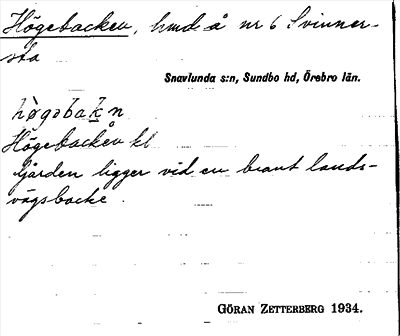 Högebacken, hmd å nr 6 Svinner-
sta
Snavlunda s:n, Sundbo hd, Örebro län.
hø̀gəbak̥n
Högebacken kl
Gården ligger vid en brant lands-
vägsbacke.
GÖRAN ZETTERBERG 1934.